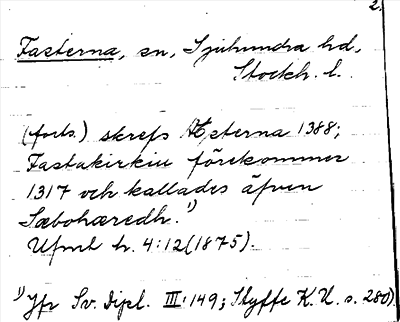 2.
Fasterna, sn, Sjuhundra hd,
Stockh. l.
(forts.) skrefs Æsterna 1388;
Fastakirkiu förekommer
1317 och kallades äfven
Sæbohæredh.¹)
Ufmt h. 4:12 (1875).
¹) Jfr Sv. Dipl. III:149; Styffe K. U. s. 280).